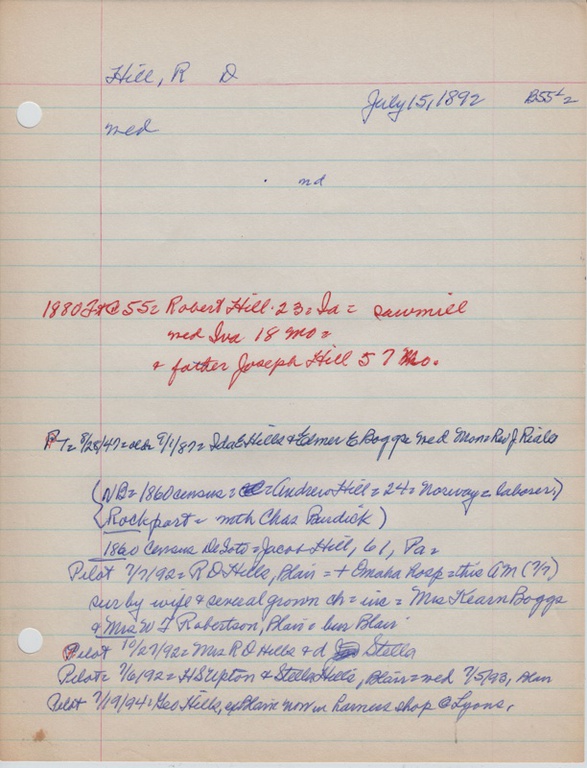 Hill, R D
July 15, 1892 B55 2
med
nd
1880 55 = Robert Hill 23 = Ia = sawmill
wed Iva 18 Mo =
+ father Joseph Hill 57 Mo.
8/25/47 = 9/1/87 = Ida E Hills & Elmer E Boggs wed Mon = Rev J Rialo
(NB = 1860 census = Andrew Hill = 24 = Norway = laborer,)
Rockport = with Chas Burdick)
1860 Census DeSoto = Jacob Hill, 61, Pa =
Pilot 7/7/92 = R D Hills, Blair = + Omaha Hosp = this AM (7/7)
sur by wife & several grown ch = inc = Mrs Kearn Boggs
& Mrs W F Robertson, Blair = bur Blair
Pilot 10/27/92 = Mrs R D Hills & d Stella
Pilot = 7/6/92 = H S Tipton & Stella Hills, Blair = wed 7/5/93, Blair
Pilot 7/19/94 = Geo Hills, ex Blair now in harness shop @ Lyons.